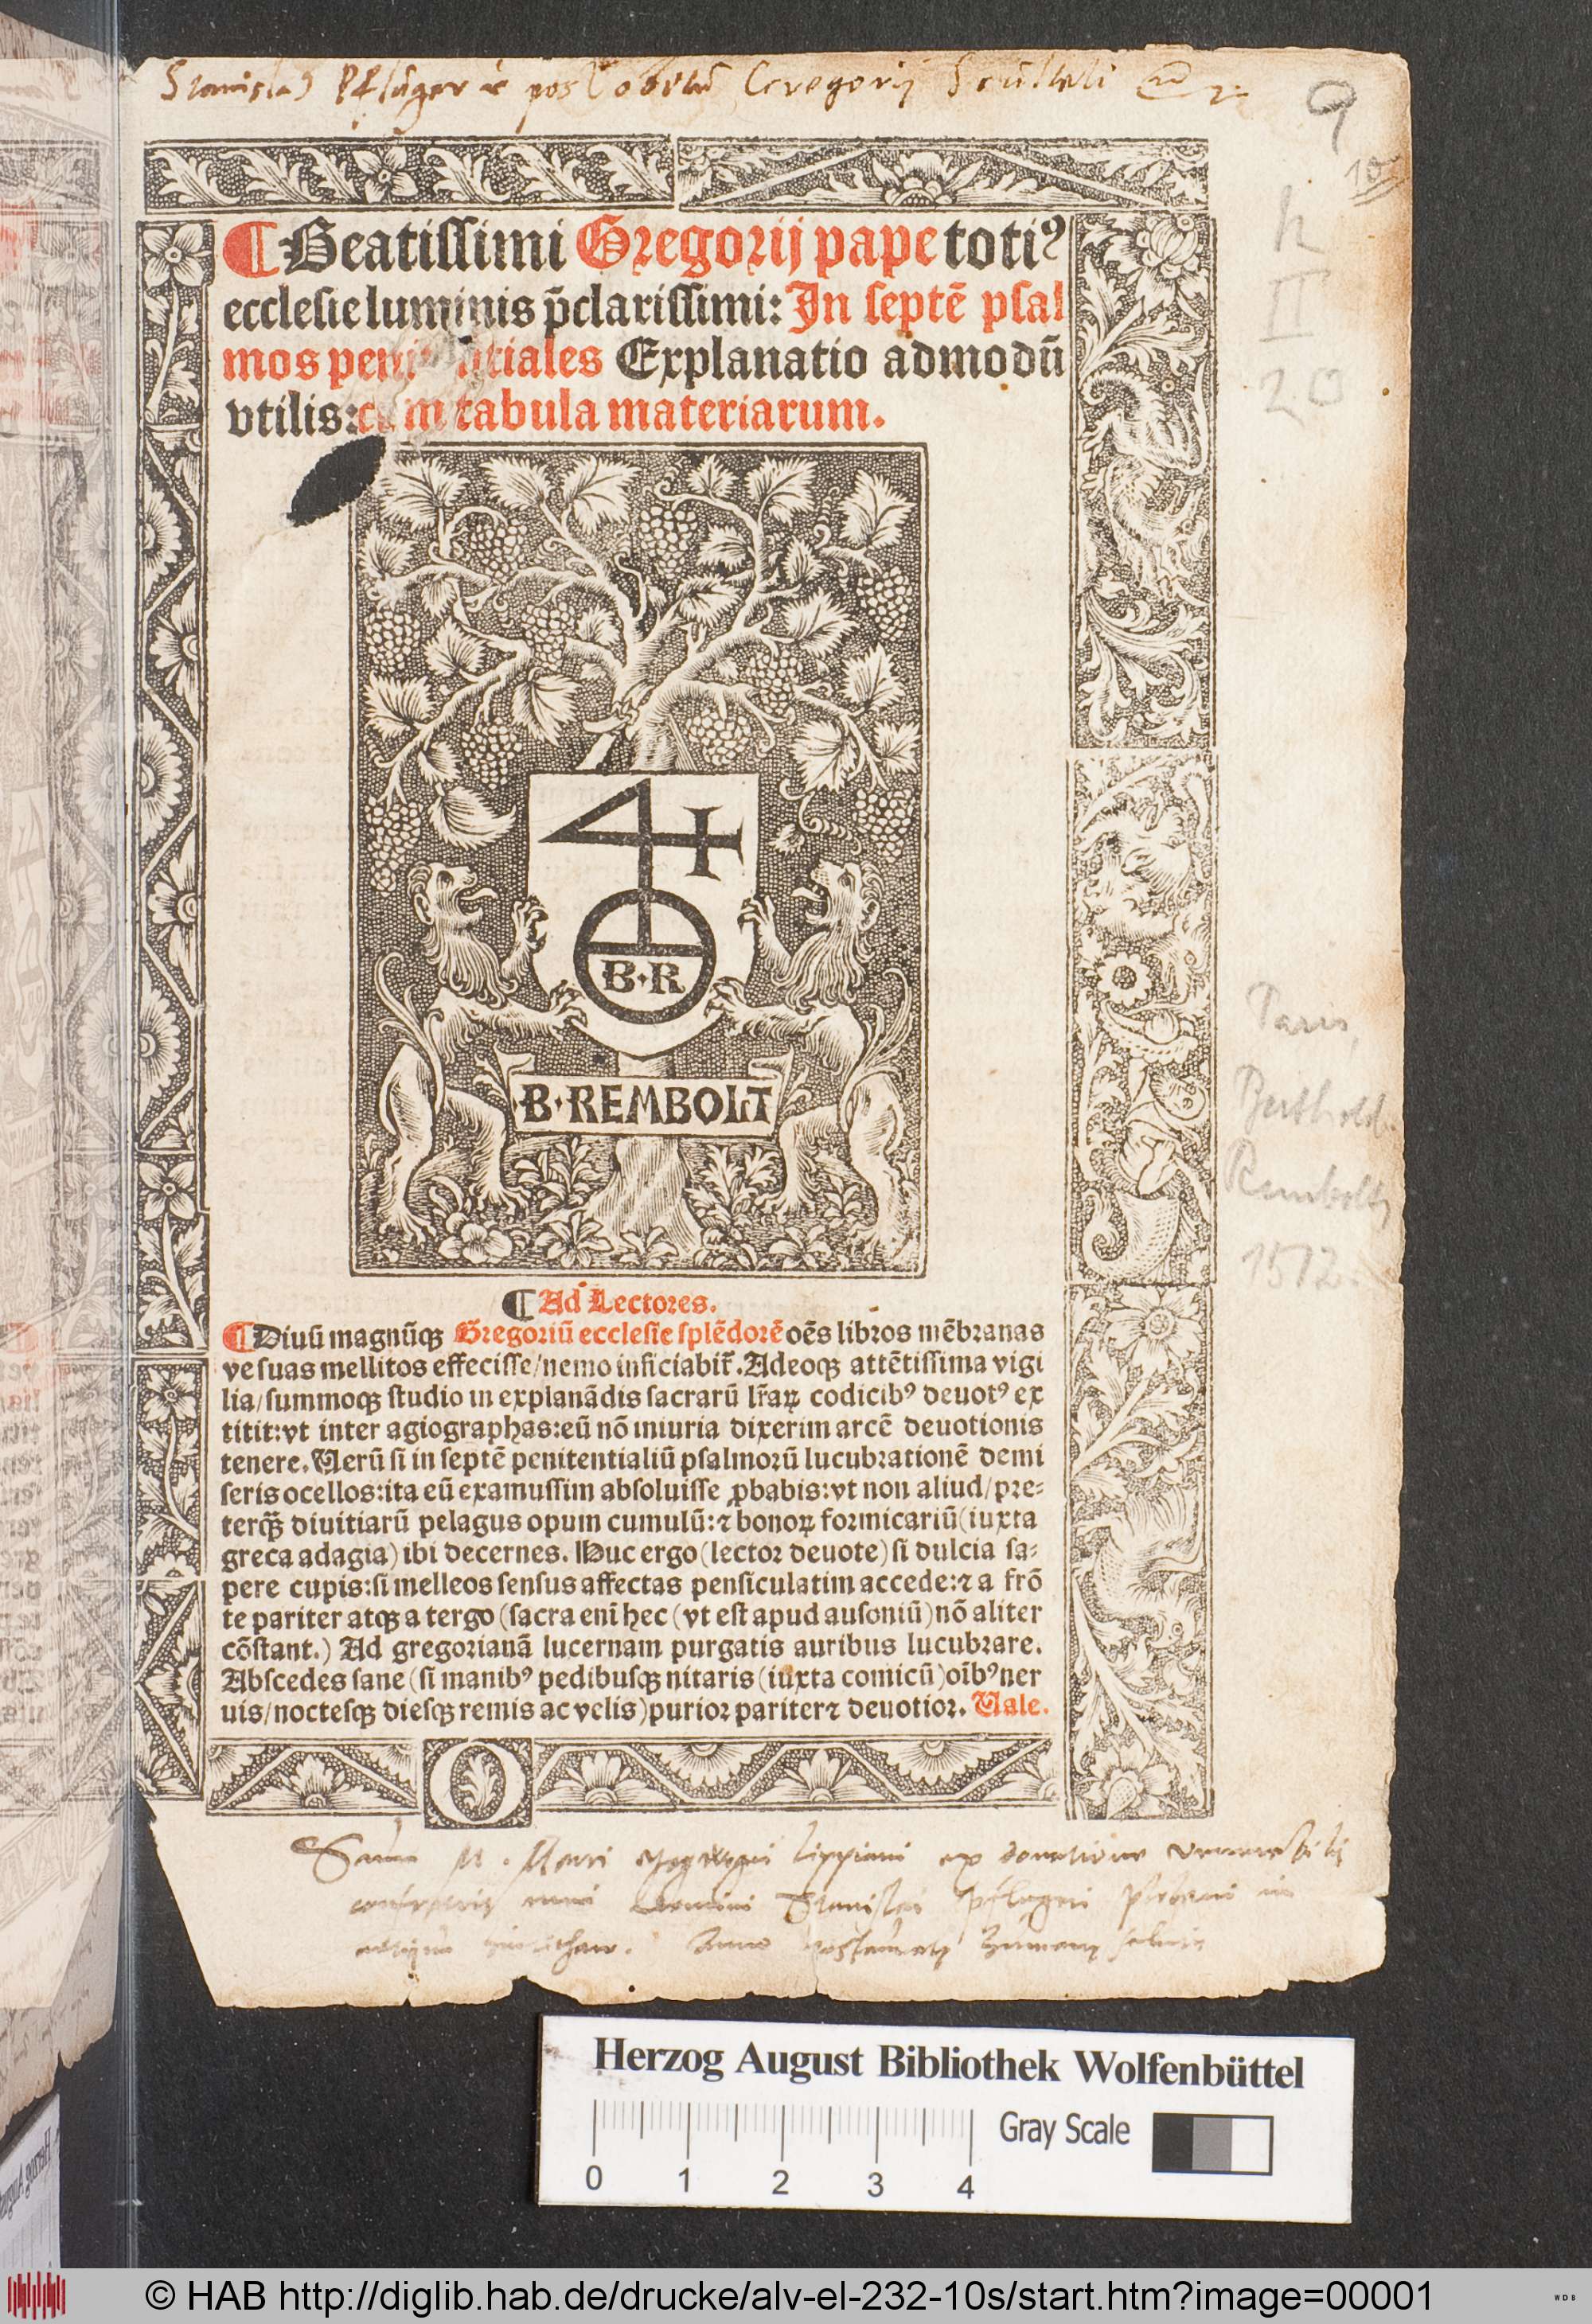 Stanislaus Pfluger post obitum Gregorij Sculteti
9
10s
¶ Beatissimi Gregorij pape toti⁹
h
ecclesie luminis p̄clarissimi: In septē psal
II
mos penitētiales Explanatio admodū
20
vtilis: cum tabula materiarum.
B·R
B·REMBOLT
Paris,
Berthold
Rembolt,
1512.
¶ Ad Lectores.
¶ Diuū magnūqꝫ Gregoriū ecclesie splēdorē oēs libros mēbranas
ve suas mellitos effecisse/nemo inficiabit̄. Adeoqꝫ attētissima vigi
lia/summoqꝫ studio in explanādis sacrarū lr̄aꝝ codicib⁹ deuot⁹ ex
titit:vt inter agiographas:eū nō iniuria dixerim arcē deuotionis
tenere. Uerū si in septē penitentialiū psalmorū lucubrationē demi
seris ocellos:ita eū examussim absoluisse ꝓbabis:vt non aliud/pre⸗
terqꝫ̄ diuitiarū pelagus opum cumulū:⁊ bonoꝝ formicariū(iuxta
greca adagia) ibi decernes. Huc ergo (lector deuote) si dulcia sa⸗
pere cupis:si melleos sensus affectas pensiculatim accede:⁊ a frō
te pariter atqꝫ a tergo (sacra enī hęc (vt est apud ausoniū) nō aliter
cōstant.) Ad gregorianā lucernam purgatis auribus lucubrare.
Abscedes sane (si manib⁹ pedibusqꝫ nitaris (iuxta comicū) oīb⁹ ner
uis/noctesqꝫ diesqꝫ remis ac velis) purior pariter ⁊ deuotior. Uale.
O
Sum M. ex donatione venerabilis
confratris mei Domini Stanislai Pflugeri Plebani in
Anno restaurate humane salutis
Herzog August Bibliothek Wolfenbüttel
Gray Scale
0 1 2 3 4
© HAB http://diglib.hab.de/drucke/alv-el-232-10s/start.htm?image=00001
WDB